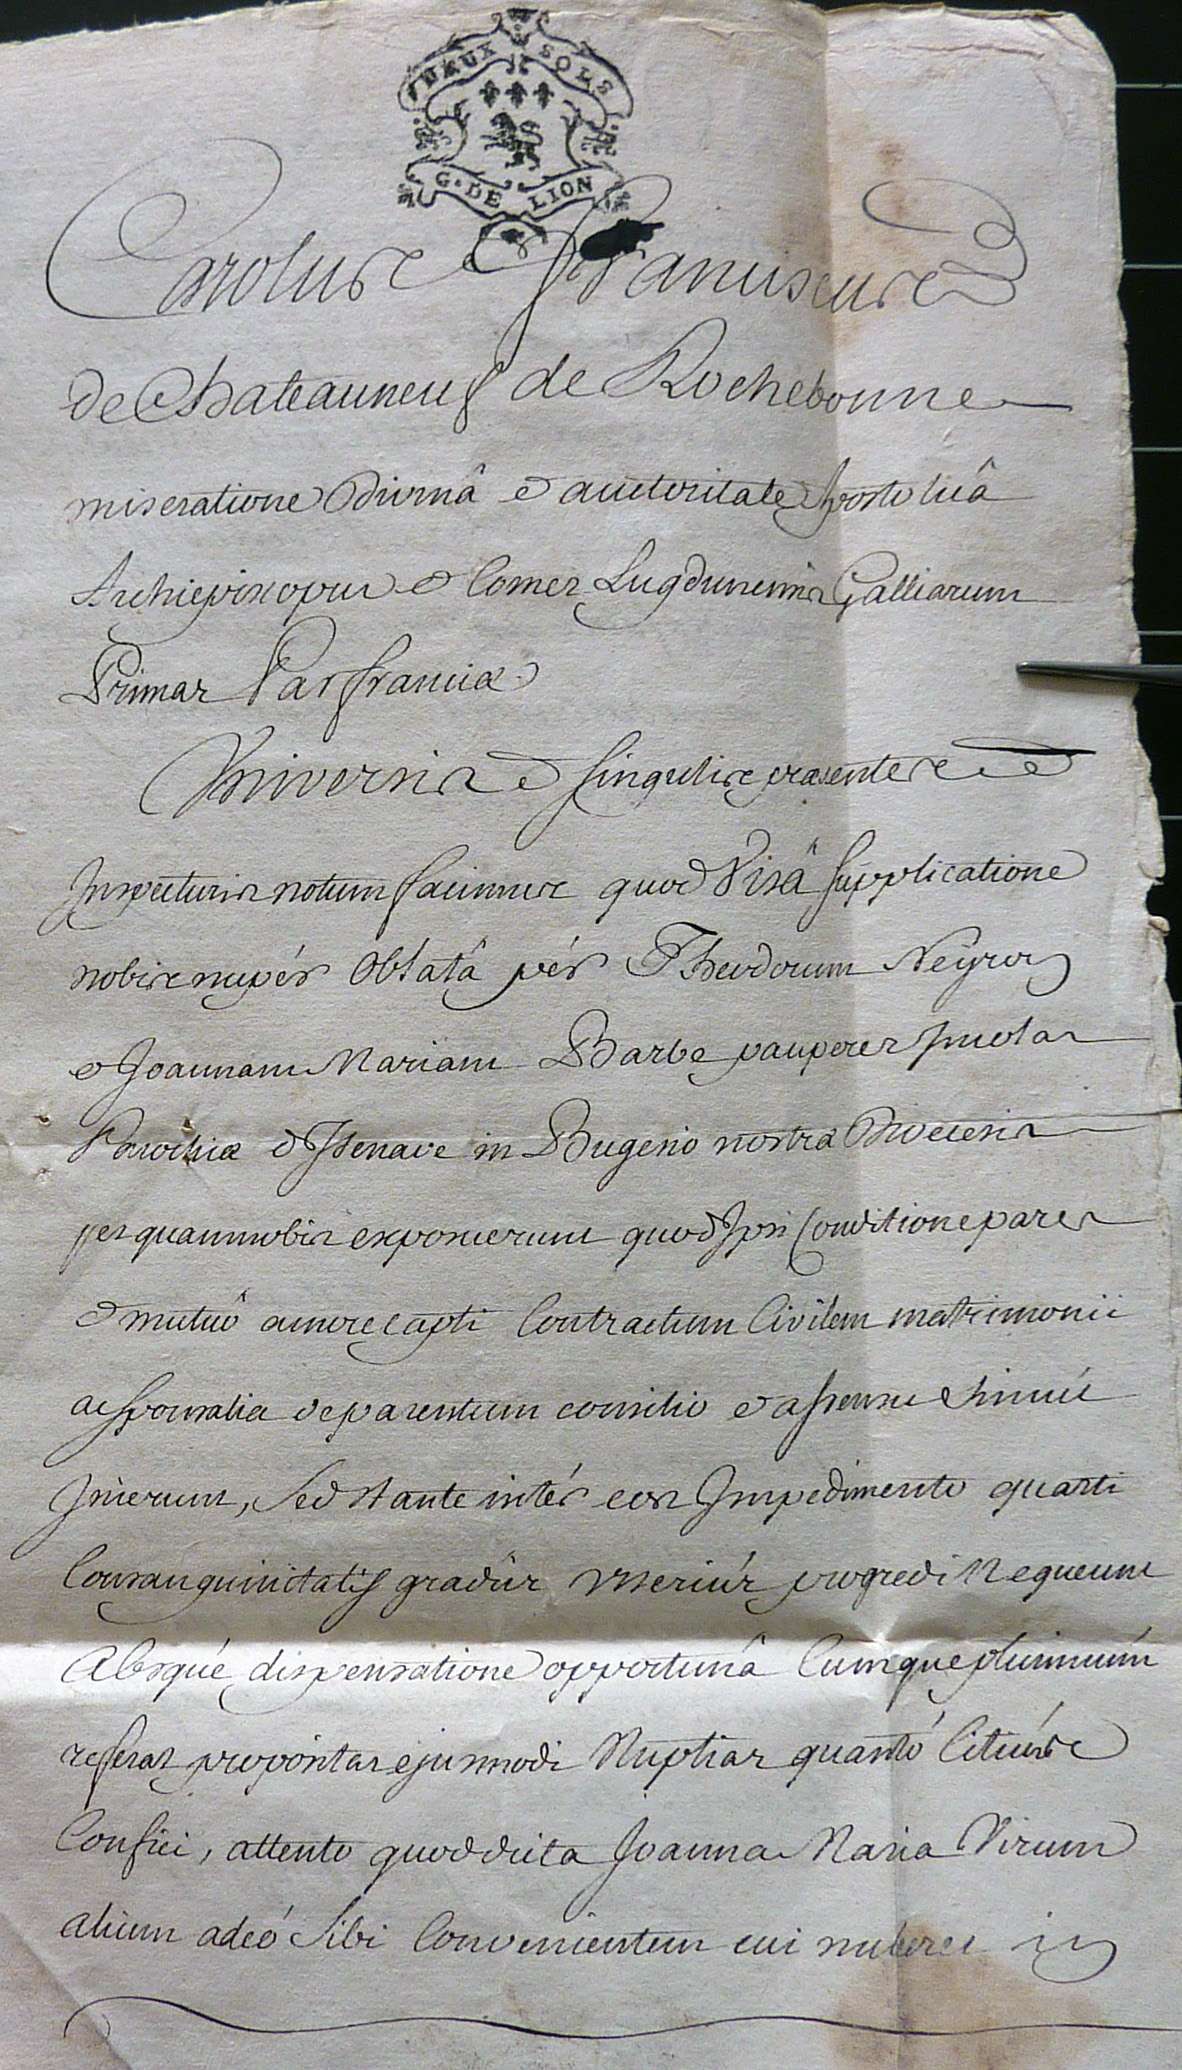 DEUX SOLS
G. DE LION
Carolus Franciscus
de Chateauneuf de Rochebonne
miseratione Divinâ et auctoritate Apostolicâ
Archiepiscopus et Comes Lugdunensis Galliarum
Primas Par franciæ
Universis et singulis præsentes
Inspecturis notum facimus quod Visâ supplicatione
nobis nupér Oblatâ pér Theodorum Neyron
et Joannam Mariam Barbe pauperes Incolas
Parochiæ d'Izenave in Bugesio nostræ Dioecesis
per quam nobis exposuerunt quod Ipsi Conditione pares
et mutuô amore capti Contractum Civilem matrimonii
ac sponsalia de parentum consilio et assensu simúl
Inierunt, Sed stante intér eos Impedimento quarti
Consanguinitatis gradûs ulteriús progredi Nequeunt
Absqué dispensatione opportunâ Cumque plurimúm
referat propositas ejusmodi Nuptias quantó Citiús
Confici, attento quod dicta Joanna Maria Virum
alium adeó Sibi Convenientem cui nuberet in